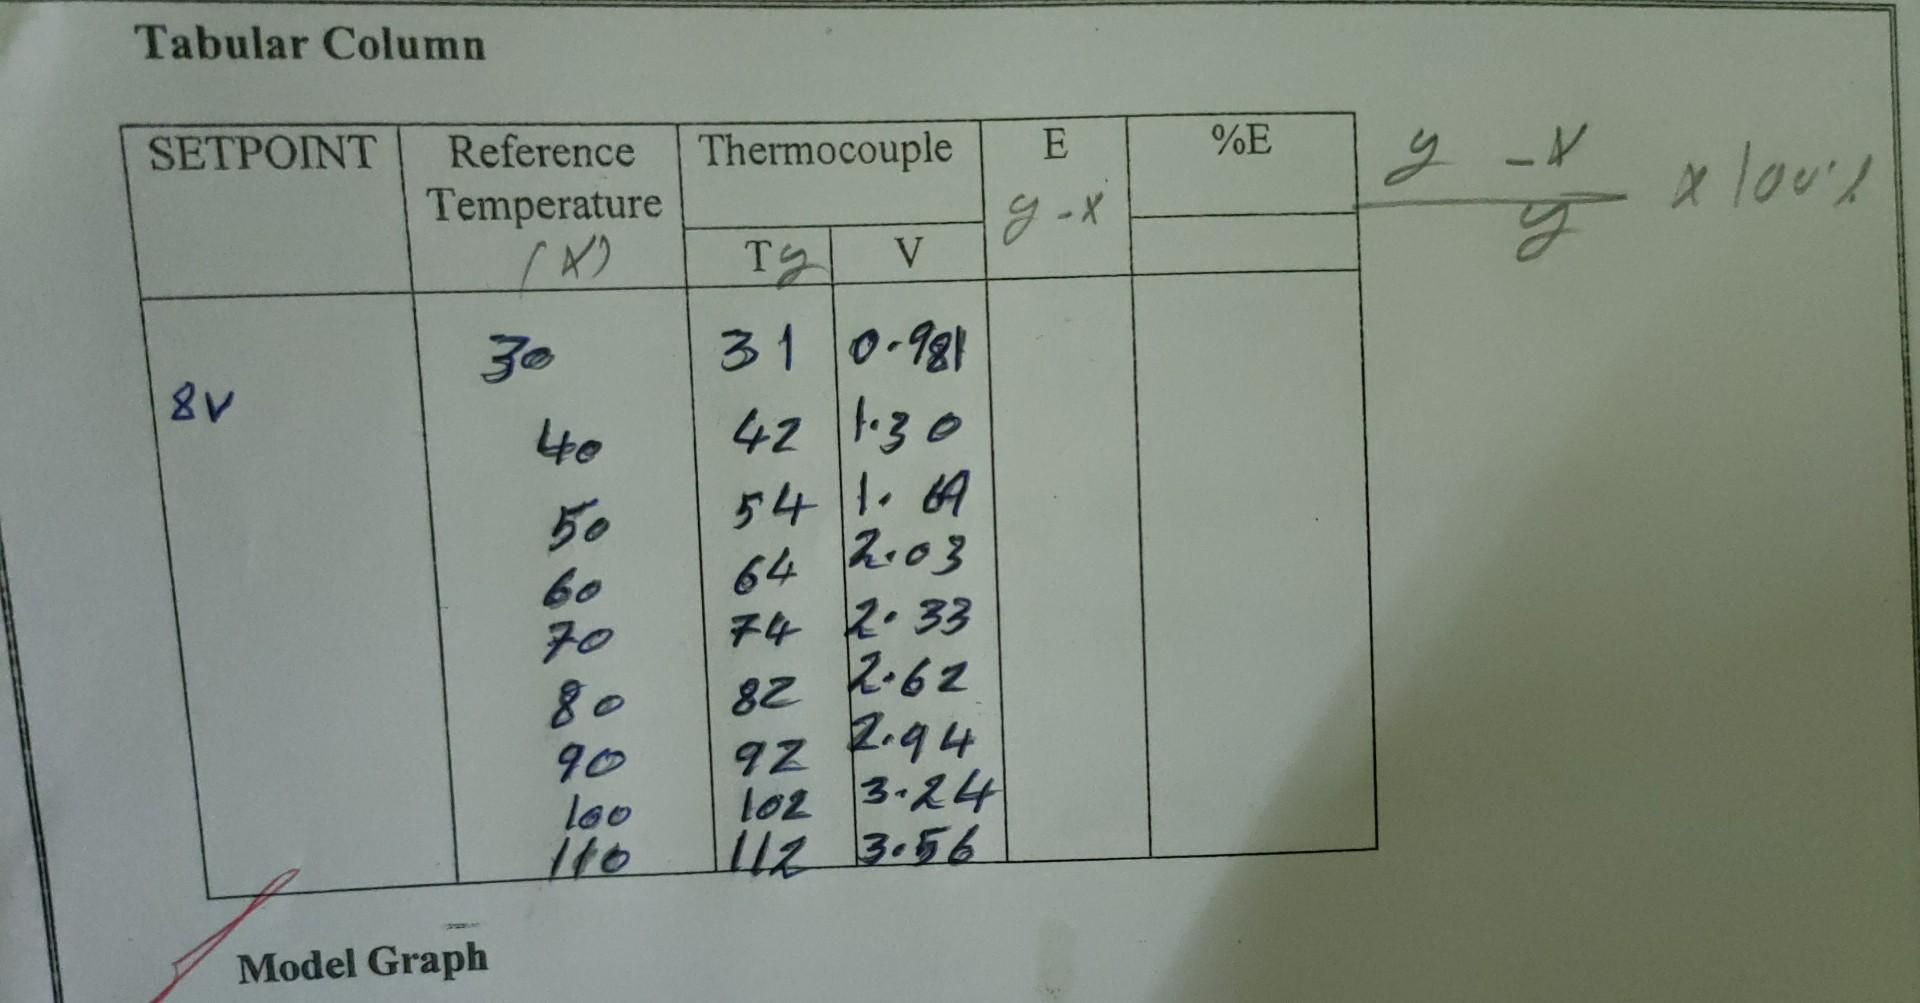 Tabular Column
SETPOINT Reference Temperature (x) Thermocouple E y-x %E
T y V
y - x / y x 100%
8V
30 31 0.981
40 42 1.30
50 54 1.69
60 64 2.03
70 74 2.33
80 82 2.62
90 92 2.94
100 102 3.24
110 112 3.56
Model Graph